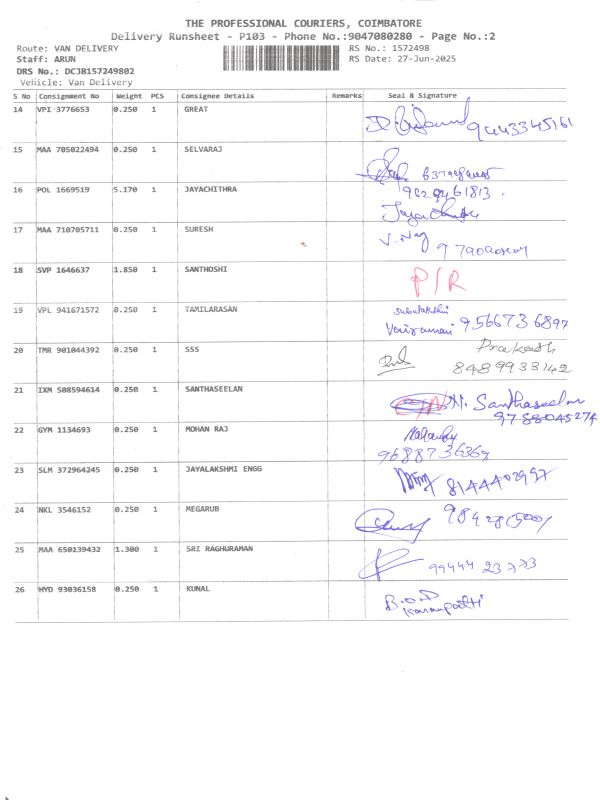 THE PROFESSIONAL COURIERS, COIMBATORE
Delivery Runsheet - P103 - Phone No.:9047080280 - Page No.:2
Route: VAN DELIVERY RS No.: 1572498
Staff: ARUN RS Date: 27-Jun-2025
DRS No.: DCJB157249802
Vehicle: Van Delivery
S No Consignment No Weight PCS Consignee Details Remarks Seal & Signature
14 VPI 3776653 0.250 1 GREAT
15 MAA 705022494 0.250 1 SELVARAJ
16 POL 1669519 5.170 1 JAYACHITHRA
17 MAA 710705711 0.250 1 SURESH
18 SVP 1646637 1.850 1 SANTHOSHI P/R
19 VPL 941671572 0.250 1 TAMILARASAN
9566736897
20 TMR 901044392 0.250 1 SSS Prakash
8489933142
21 IXM 508594614 0.250 1 SANTHASEELAN
N. Santhaseelan
9788045274
22 GYM 1134693 0.250 1 MOHAN RAJ
9688736369
23 SLM 372964245 0.250 1 JAYALAKSHMI ENGG
8144402997
24 NKL 3546152 0.250 1 MEGARUB
25 MAA 650139432 1.300 1 SRI RAGHURAMAN
26 HYD 93036158 0.250 1 KUNAL